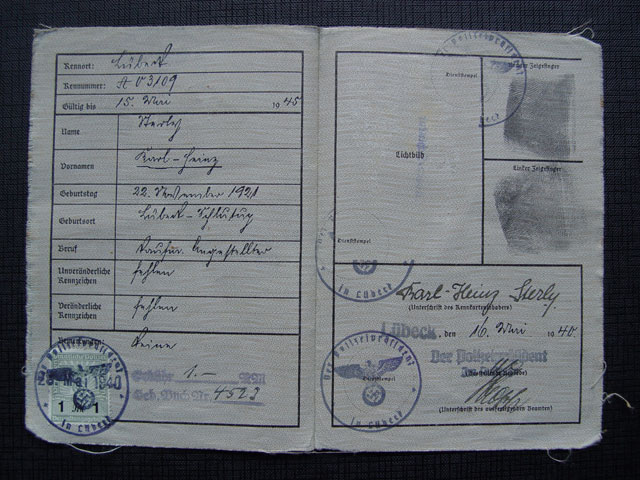 Kennort: Lübeck
Kennummer: A 03109
Gültig bis 15. Mai 1945
Name Sterly
Vornamen Karl-Heinz
Geburtstag 22. November 1921
Geburtsort Lübeck-Schlutup
Beruf kaufm. Angestellter
Unveränderliche Kennzeichen fehlen
Veränderliche Kennzeichen fehlen
Keine
Der Polizeipräsident
Mai 1940
1 1
in Lübeck
Gebühr 1.— RM
Geb. Buch Nr. 4523
Der Polizeipräsident
Dienststempel
Lichtbild
Rechter Zeigefinger
Linker Zeigefinger
Dienststempel
in Lübeck
Karl-Heinz Sterly
(Unterschrift des Kennkarteninhabers)
Lübeck, den 16. Mai 1940
Der Polizeipräsident
Der Polizeipräsident
Dienststempel
in Lübeck
(Unterschrift des ausfertigenden Beamten)